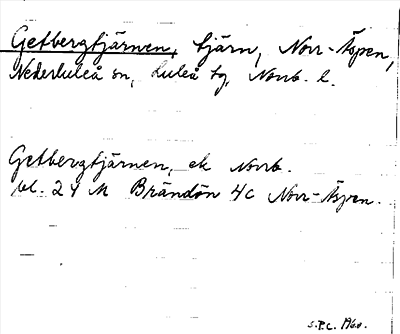 Getbergtjärnen, tjärn, Norr-Äspen,
Nederluleå sn, Luleå tg, Norrb. l.
Getbergtjärnen, ek Norrb.
bl. 24 M Brändön 4c Norr-Äspen.
S.P.C. 1960.